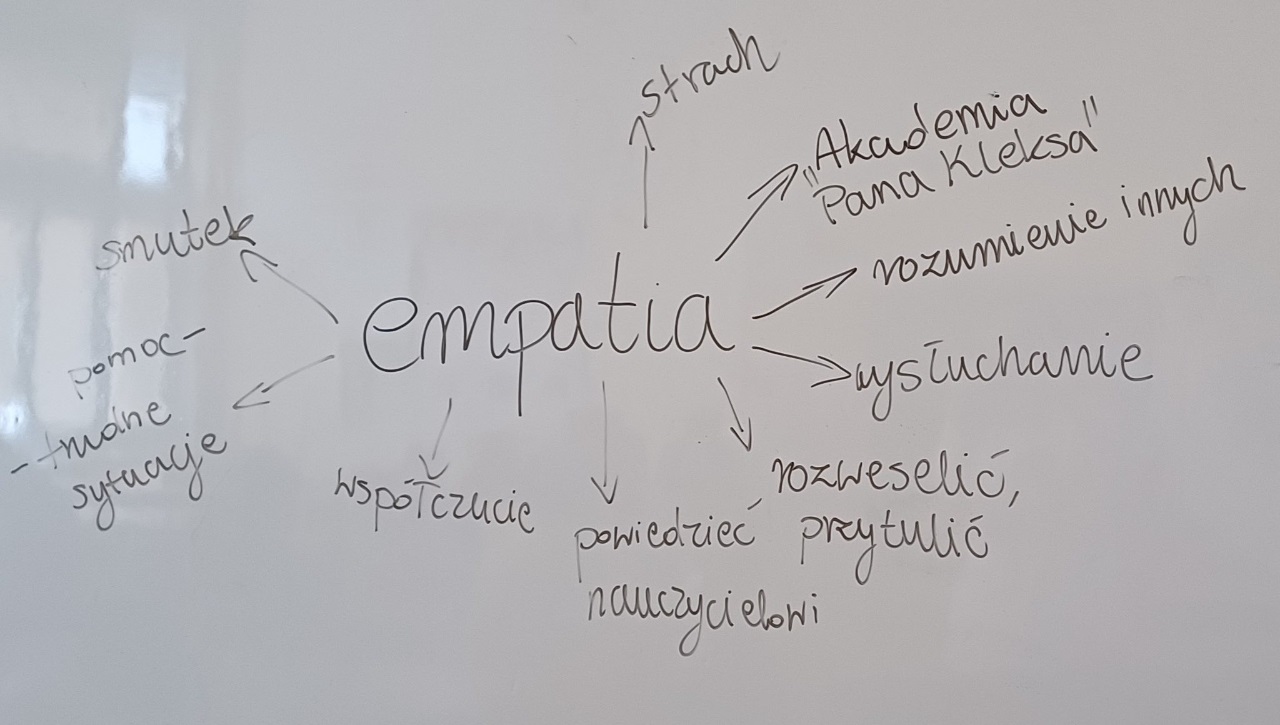 strach
„Akademia
Pana Kleksa"
rozumienie innych
smutek
empatia
wysłuchanie
pomoc-
-trudne
sytuacje
współczucie
powiedzieć
nauczycielowi
rozweselić,
przytulić